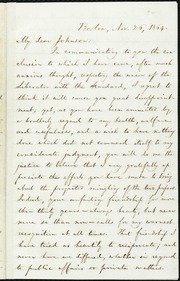 Boston, Nov. 24, 1864.
My dear Johnson:
In communicating to you the con-
clusion to which I have come, after much
anxious thought, respecting the union of the
Liberator with the Standard, I regret to
think it will cause you great disappoint-
ment; yet, as you have been animated by
a brotherly regard to my health, welfare
and usefulness, and a wish to have nothing
done which did not commend itself to my
considerate judgment, you will do me the
justice to believe that I very gratefully ap-
preciate the efforts you have made to bring
about the projected mingling of the two papers.
Indeed, your unfailing friendship for more
than thirty years—always hearty, but never
more so than now—calls for my warmest
recognition at all times. That friendship I
have tried as heartily to reciprocate; and
never have we differed, whether in regard
to public affairs or private matters.